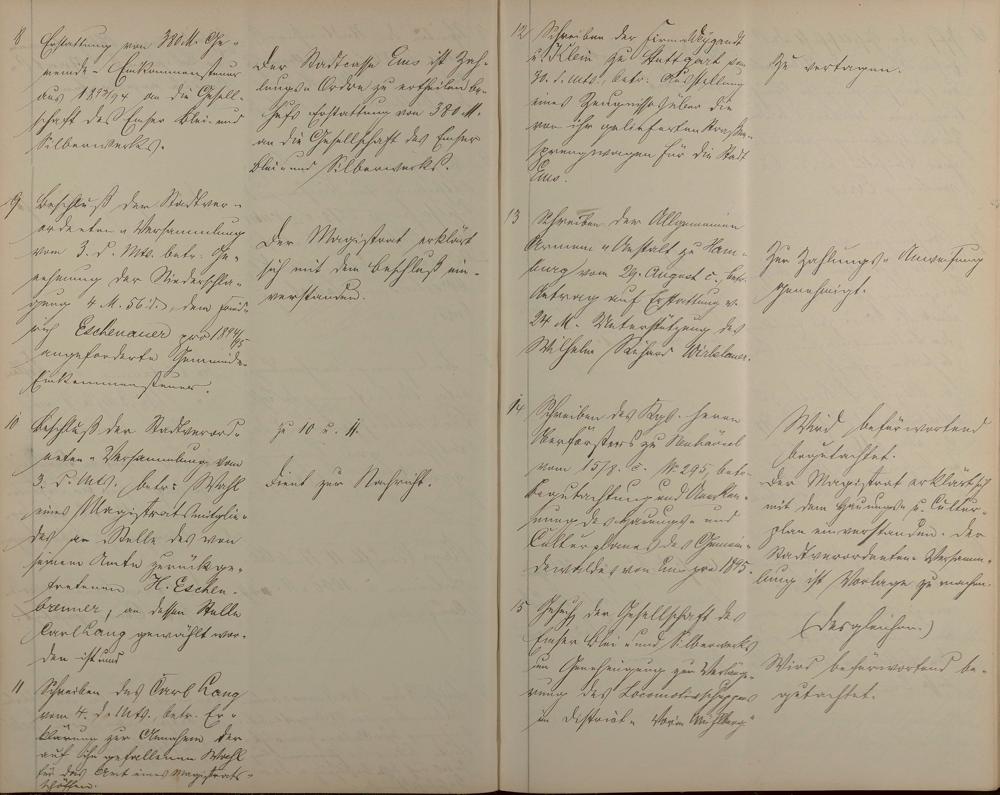 8 Erstattung von 380 M. Ge-
meinde-Einkommensteuer
aus 1893/94 an die Gesell-
schaft des Emser Blei- und
Silberwerks.
Der Stadtcasse Ems ist Zah-
lungs-Ordre zu ertheilen be-
hufs Erstattung von 380 M.
an die Gesellschaft des Emser
Blei- und Silberwerks.
9 Beschluß der Stadtver-
ordneten-Versammlung
vom 3. d. Mts. betr. Ge-
nehmung der Niederschla-
gung 4 M. 56 d., dem
Eschenauer pro 1894/95
angeforderte Gemeinde-
Einkommensteuer.
Der Magistrat erklärt
sich mit dem Beschluß ein-
verstanden.
10 Beschluß der Stadtverord-
neten-Versammlung vom
3. d. Mts., betr: Wahl
eines Magistratsmitglie-
des an Stelle des von
seinem Amte zurückge-
tretenen H. Eschen-
brenner, an dessen Stelle
Carl Lang gewählt wor-
den ist und
zu 10 u. 11.
Dient zur Nachricht.
11 Schreiben des Carl Lang
vom 4. d. Mts., betr. Er-
klärung zur Annahme der
auf ihn gefallenen Wahl
für das Amt eines Magistrats-
schöffen.
12 Schreiben der Firma
u. Klein zu Stuttgart vom
30. d. Mts., betr. Ausstellung
eines Zeugnisses über die
von ihr gelieferten Straßen-
sprengwagen für die Stadt
Ems.
Zu vertagen.
13 Schreiben der Allgemeinen
Armen-Anstalt zu Ham-
burg vom 29. August c. betr.
Antrag auf Erstattung v.
24 M. Unterstützung des
Wilhelm Richard
Zur Zahlungs-Anweisung
genehmigt.
14 Schreiben des Kgl. Herrn
Oberförsters zu
vom 15/8. c. No 295, betr.
Begutachtung und Anerken-
nung des Hauungs- und
Culturplanes des Gemein-
dewaldes von Ems pro 1895.
Wird befürwortend
begutachtet.
Der Magistrat erklärt sich
mit dem Hauungs- u. Cultur-
plan einverstanden. Der
Stadtverordneten-Versamm-
lung ist Vorlage zu machen.
15 Gesuch der Gesellschaft des
Emser Blei- und Silberwerks
um Genehmigung zur Verlänge-
rung des Locomotivschuppens
im District "Vorm Mühlberg"
(Desgleichen.)
Wird befürwortend be-
gutachtet.